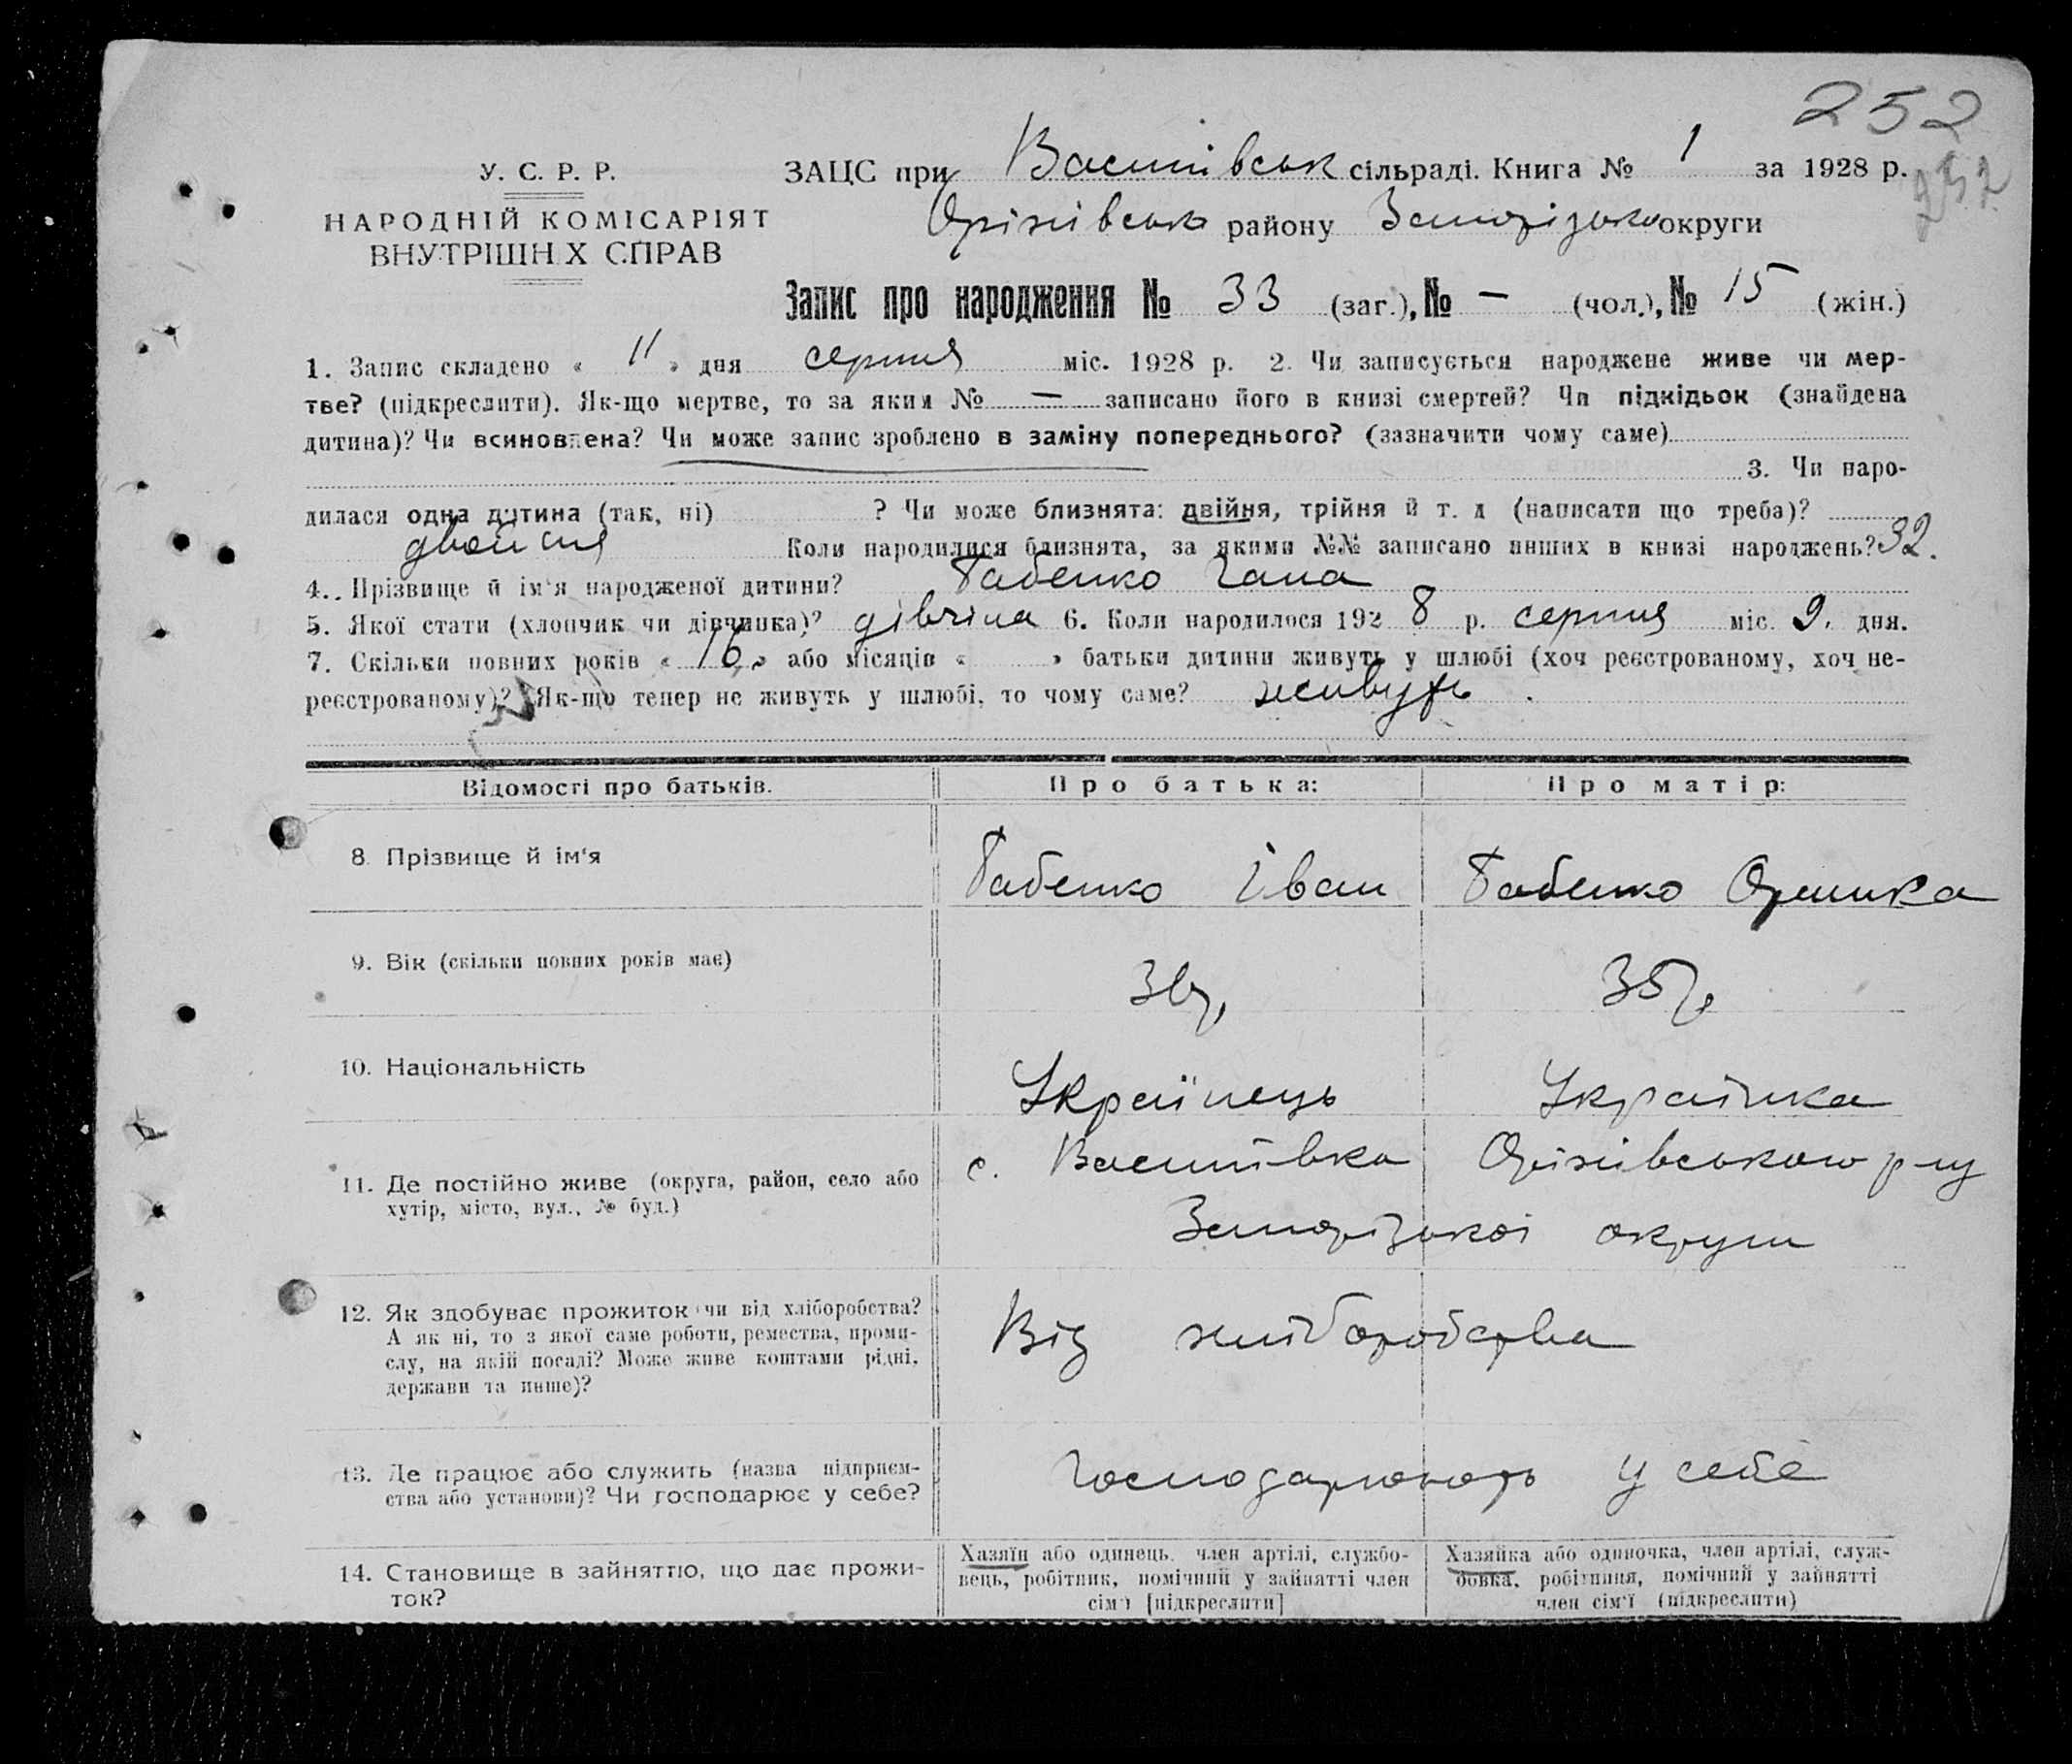 252
252
У. С. Р. Р.
НАРОДНІЙ КОМІСАРІЯТ
ВНУТРІШН Х СПРАВ
ЗАЦС при Василівськ сільраді. Книга № 1 за 1928 р.
Оріхівськ району Запорізької округи
Запис про народження № 33 (заг.), № — (чол.), № 15 (жін.)
1. Запис складено « 11 » дня серпня міс. 1928 р. 2. Чи записується народжене живе чи мер-
тве? (підкреслити). Як-що мертве, то за яким № — записано його в книзі смертей? Чи підкідьок (знайдена
дитина)? Чи всиновлена? Чи може запис зроблено в заміну попереднього? (зазначити чому саме)
3. Чи наро-
дилася одна дитина (так, ні) ? Чи може близнята: двійня, трійня й т. д (написати що треба)?
двойня Коли народилися близнята, за якими №№ записано инших в книзі народжень? 32.
4. Прізвище й ім'я народженої дитини? Бабенко Гана
5. Якої статі (хлопчик чи дівчинка)? дівчина 6. Коли народилося 192 8 р. серпня міс. 9. дня.
7. Скільки повних років « 16 » або місяців « » батьки дитини живуть у шлюбі (хоч реєстрованому, хоч не-
реєстрованому)? Як-що тепер не живуть у шлюбі, то чому саме? живуть.
Відомості про батьків. Про батька: Про матір:
8. Прізвище й ім'я Бабенко Іван Бабенко Оришка
9. Вік (скільки повних років має) 36 р. 35 р.
10. Національність Українець Українка
11. Де постійно живе (округа, район, село або с. Василівка Оріхівського р-ну
хутір, місто, вул., № буд.) Запорізької округи
12. Як здобуває прожиток чи від хліборобства? Від хліборобства
А як ні, то з якої саме роботи, ремества, проми-
слу, на якій посаді? Може живе коштами рідні,
держави та инше)?
13. Де працює або служить (назва підприєм- Господарюють у себе
ства або установи)? Чи господарює у себе?
14. Становище в зайняттю, що дає прожи-
ток?
Хазяїн або одинець, член артілі, службо-
вець, робітник, помічний у зайнятті член
сім'ї [підкреслити]
Хазяйка або одиночка, член артілі, служ-
бовка, робітниця, помічний у зайнятті
член сім'ї (підкреслити)